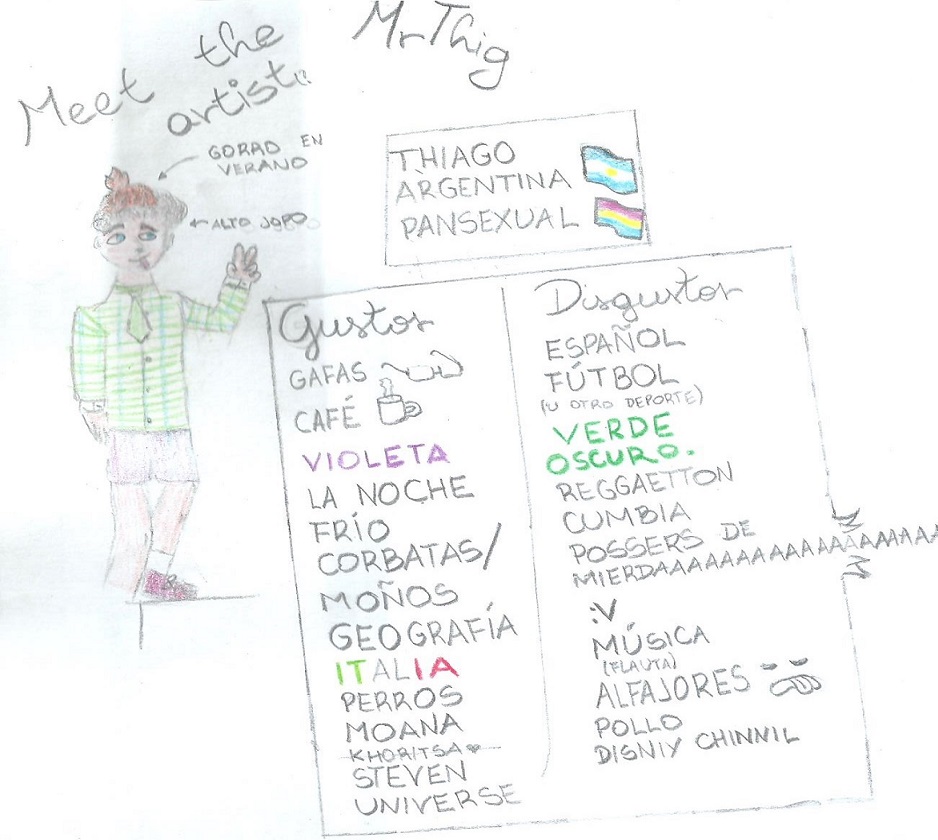 Meet the
artist!!
MrThig
GORRO EN
VERANO
ALTO JOPO
THIAGO
ARGENTINA
PANSEXUAL
Gustos
GAFAS
CAFÉ
VIOLETA
LA NOCHE
FRÍO
CORBATAS/
MOÑOS
GEOGRAFÍA
ITALIA
PERROS
MOANA
KHORITSA
STEVEN
UNIVERSE
Disgustos
ESPAÑOL
FÚTBOL
(U OTRO DEPORTE)
VERDE
OSCURO.
REGGAETTON
CUMBIA
POSSERS DE
MIERDAAAAAAAAAAAAAAAAAAAA
:V
MÚSICA
(FLAUTA)
ALFAJORES
POLLO
DISNIY CHINNIL